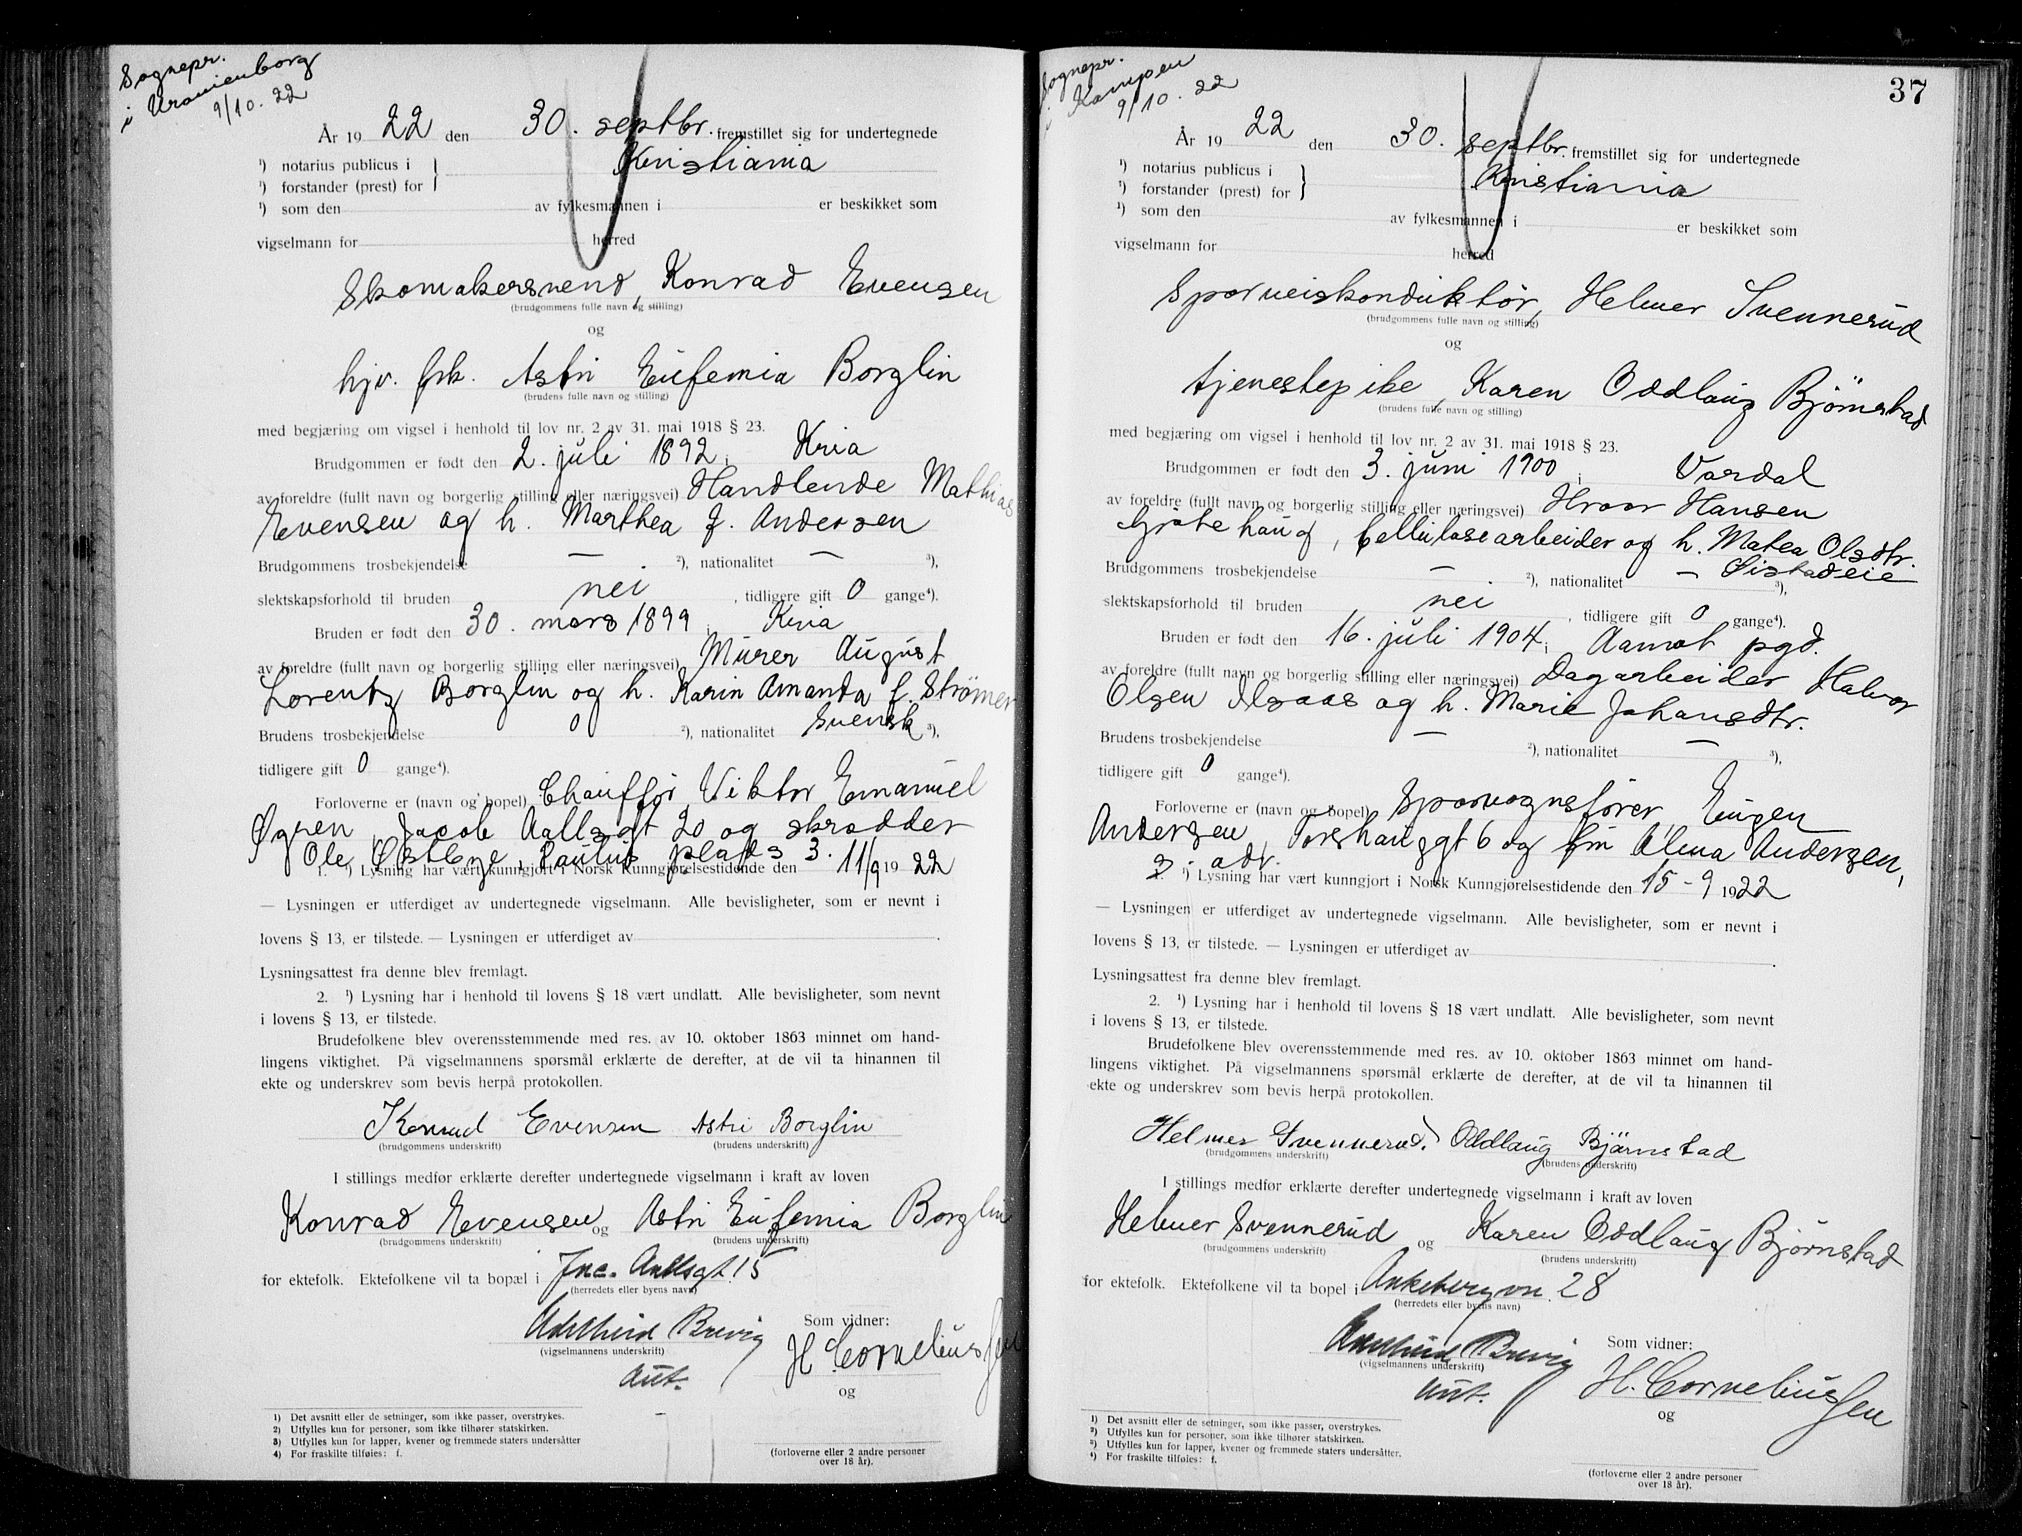 Sognepr.
i Uranienborg
9/10. 22
År 19 22 den 30. septbr. fremstillet sig for undertegnede
¹) notarius publicus i } Kristiania
¹) forstander (prest) for
¹) som den av fylkesmannen i er beskikket som
vigselmann for herred
Skomakersvend, Konrad Evensen
(brudgommens fulle navn og stilling)
og
hjv. frk. Astri Eufemia Borglin
(brudens fulle navn og stilling)
med begjæring om vigsel i henhold til lov nr. 2 av 31. mai 1918 § 23.
Brudgommen er født den 2. juli 1892, Kria
av foreldre (fullt navn og borgerlig stilling eller næringsvei) Handlende Mathias
Evensen og h. Marthea f. Andersen
Brudgommens trosbekjendelse — ²), nationalitet — ³),
slektskapsforhold til bruden nei , tidligere gift 0 gange⁴).
Bruden er født den 30. mars 1899, Kria
av foreldre (fullt navn og borgerlig stilling eller næringsvei) Murer August
Lorentz Borglin og h. Karin Amanda f. Strömer
Brudens trosbekjendelse 0 ²), nationalitet Svensk ³),
tidligere gift 0 gange⁴).
Forloverne er (navn og bopel) Chauffør Viktor Emanuel
Øgren, Jacob Aallsgt 20 og skrædder
Ole Østbye, Paulus plads 3.
1. ¹) Lysning har vært kunngjort i Norsk Kunngjørelsestidende den 11/9 19 22
— Lysningen er utferdiget av undertegnede vigselmann. Alle bevisligheter, som er nevnt i
lovens § 13, er tilstede. — Lysningen er utferdiget av .
Lysningsattest fra denne blev fremlagt.
2. ¹) Lysning har i henhold til lovens § 18 vært undlatt. Alle bevisligheter, som nevnt
i lovens § 13, er tilstede.
Brudefolkene blev overensstemmende med res. av 10. oktober 1863 minnet om hand-
lingens viktighet. På vigselmannens spørsmål erklærte de derefter, at de vil ta hinannen til
ekte og underskrev som bevis herpå protokollen.
Konrad Evensen Astri Borglin
(brudgommens underskrift) (brudens underskrift)
I stillings medfør erklærte derefter undertegnede vigselmann i kraft av loven
Konrad Evensen og Astri Eufemia Borglin
(brudgommens underskrift) (brudens underskrift)
for ektefolk. Ektefolkene vil ta bopæl i Jac. Aallsgt. 15
(herredets eller byens navn)
Adelheid Brevig Som vidner:
(vigselmannens underskrift) H Corneliussen
aut. og
1) Det avsnitt eller de setninger, som ikke passer, overstrykes.
2) Utfylles kun for personer, som ikke tilhører statskirken.
3) Utfylles kun for lapper, kvener og fremmede staters undersåtter
4) For fraskilte tilføies: f.
(forloverne eller 2 andre personer
over 18 år).
37
Sognepr.
i Kampen
9/10. 22
År 19 22 den 30. septbr. fremstillet sig for undertegnede
¹) notarius publicus i } Kristiania
¹) forstander (prest) for
¹) som den av fylkesmannen i er beskikket som
vigselmann for herred
Sporveiskonduktør, Helmer Svennerud
(brudgommens fulle navn og stilling)
og
tjenestepike, Karen Oddlaug Bjørnstad
(brudens fulle navn og stilling)
med begjæring om vigsel i henhold til lov nr. 2 av 31. mai 1918 § 23.
Brudgommen er født den 3. juni 1900, Vardal
av foreldre (fullt navn og borgerlig stilling eller næringsvei) Hroar Hansen
Grötehaug, Cellulosearbeider og h. Matea Olsdtr.
Øistadeie
Brudgommens trosbekjendelse — ²), nationalitet — ³),
slektskapsforhold til bruden nei , tidligere gift 0 gange⁴).
Bruden er født den 16. juli 1904, Aamot pgd.
av foreldre (fullt navn og borgerlig stilling eller næringsvei) Dagarbeider Halvor
Olsen Aasaas og h. Marie Johansdtr.
Brudens trosbekjendelse — ²), nationalitet — ³),
tidligere gift 0 gange⁴).
Forloverne er (navn og bopel) Sporvognsfører, Eugen
Andersen Torshauggt 6 og fru Alma Andersen,
s. adr.
1. ¹) Lysning har vært kunngjort i Norsk Kunngjørelsestidende den 15-9 1922
— Lysningen er utferdiget av undertegnede vigselmann. Alle bevisligheter, som er nevnt i
lovens § 13, er tilstede. — Lysningen er utferdiget av .
Lysningsattest fra denne blev fremlagt.
2. ¹) Lysning har i henhold til lovens § 18 vært undlatt. Alle bevisligheter, som nevnt
i lovens § 13, er tilstede.
Brudefolkene blev overensstemmende med res. av 10. oktober 1863 minnet om hand-
lingens viktighet. På vigselmannens spørsmål erklærte de derefter, at de vil ta hinannen til
ekte og underskrev som bevis herpå protokollen.
Helmer Svennerud. Oddlaug Bjørnstad
(brudgommens underskrift) (brudens underskrift)
I stillings medfør erklærte derefter undertegnede vigselmann i kraft av loven
Helmer Svennerud og Karen Oddlaug Bjørnstad
(brudgommens underskrift) (brudens underskrift)
for ektefolk. Ektefolkene vil ta bopel i Ankebergvn. 28
(herredets eller byens navn)
Adelheid Brevig Som vidner:
(vigselmannens underskrift) H. Corneliussen
aut. og
¹) Det avsnitt eller de setninger, som ikke passer, overstrykes.
²) Utfylles kun for personer, som ikke tilhører statskirken.
³) Utfylles kun for lapper, kvener og fremmede staters undersåtter.
⁴) For fraskilte tilføies: f.
(forloverne eller 2 andre personer
over 18 år).